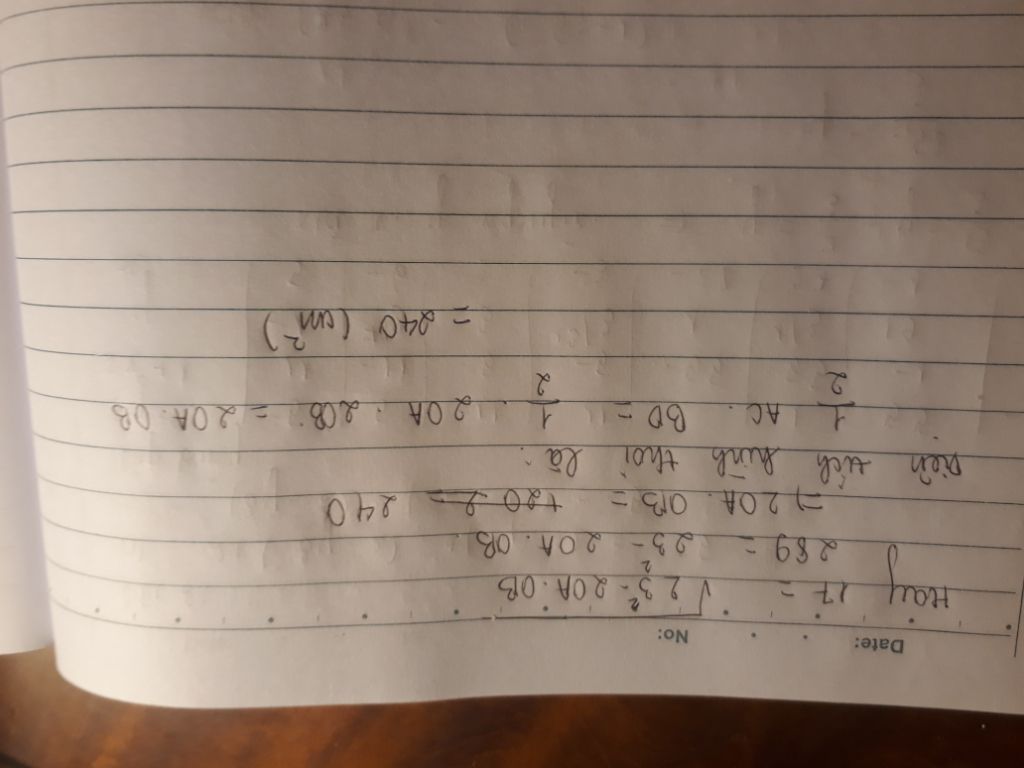 Date: No:
Hay 17 = √23² - 2OA.OB
289 = 23² - 2OA.OB
=> 2OA.OB = 240
Diện tích hình thoi là:
1/2 AC. BD = 1/2 . 2OA. 2OB = 2OA.OB
= 240 (cm²)